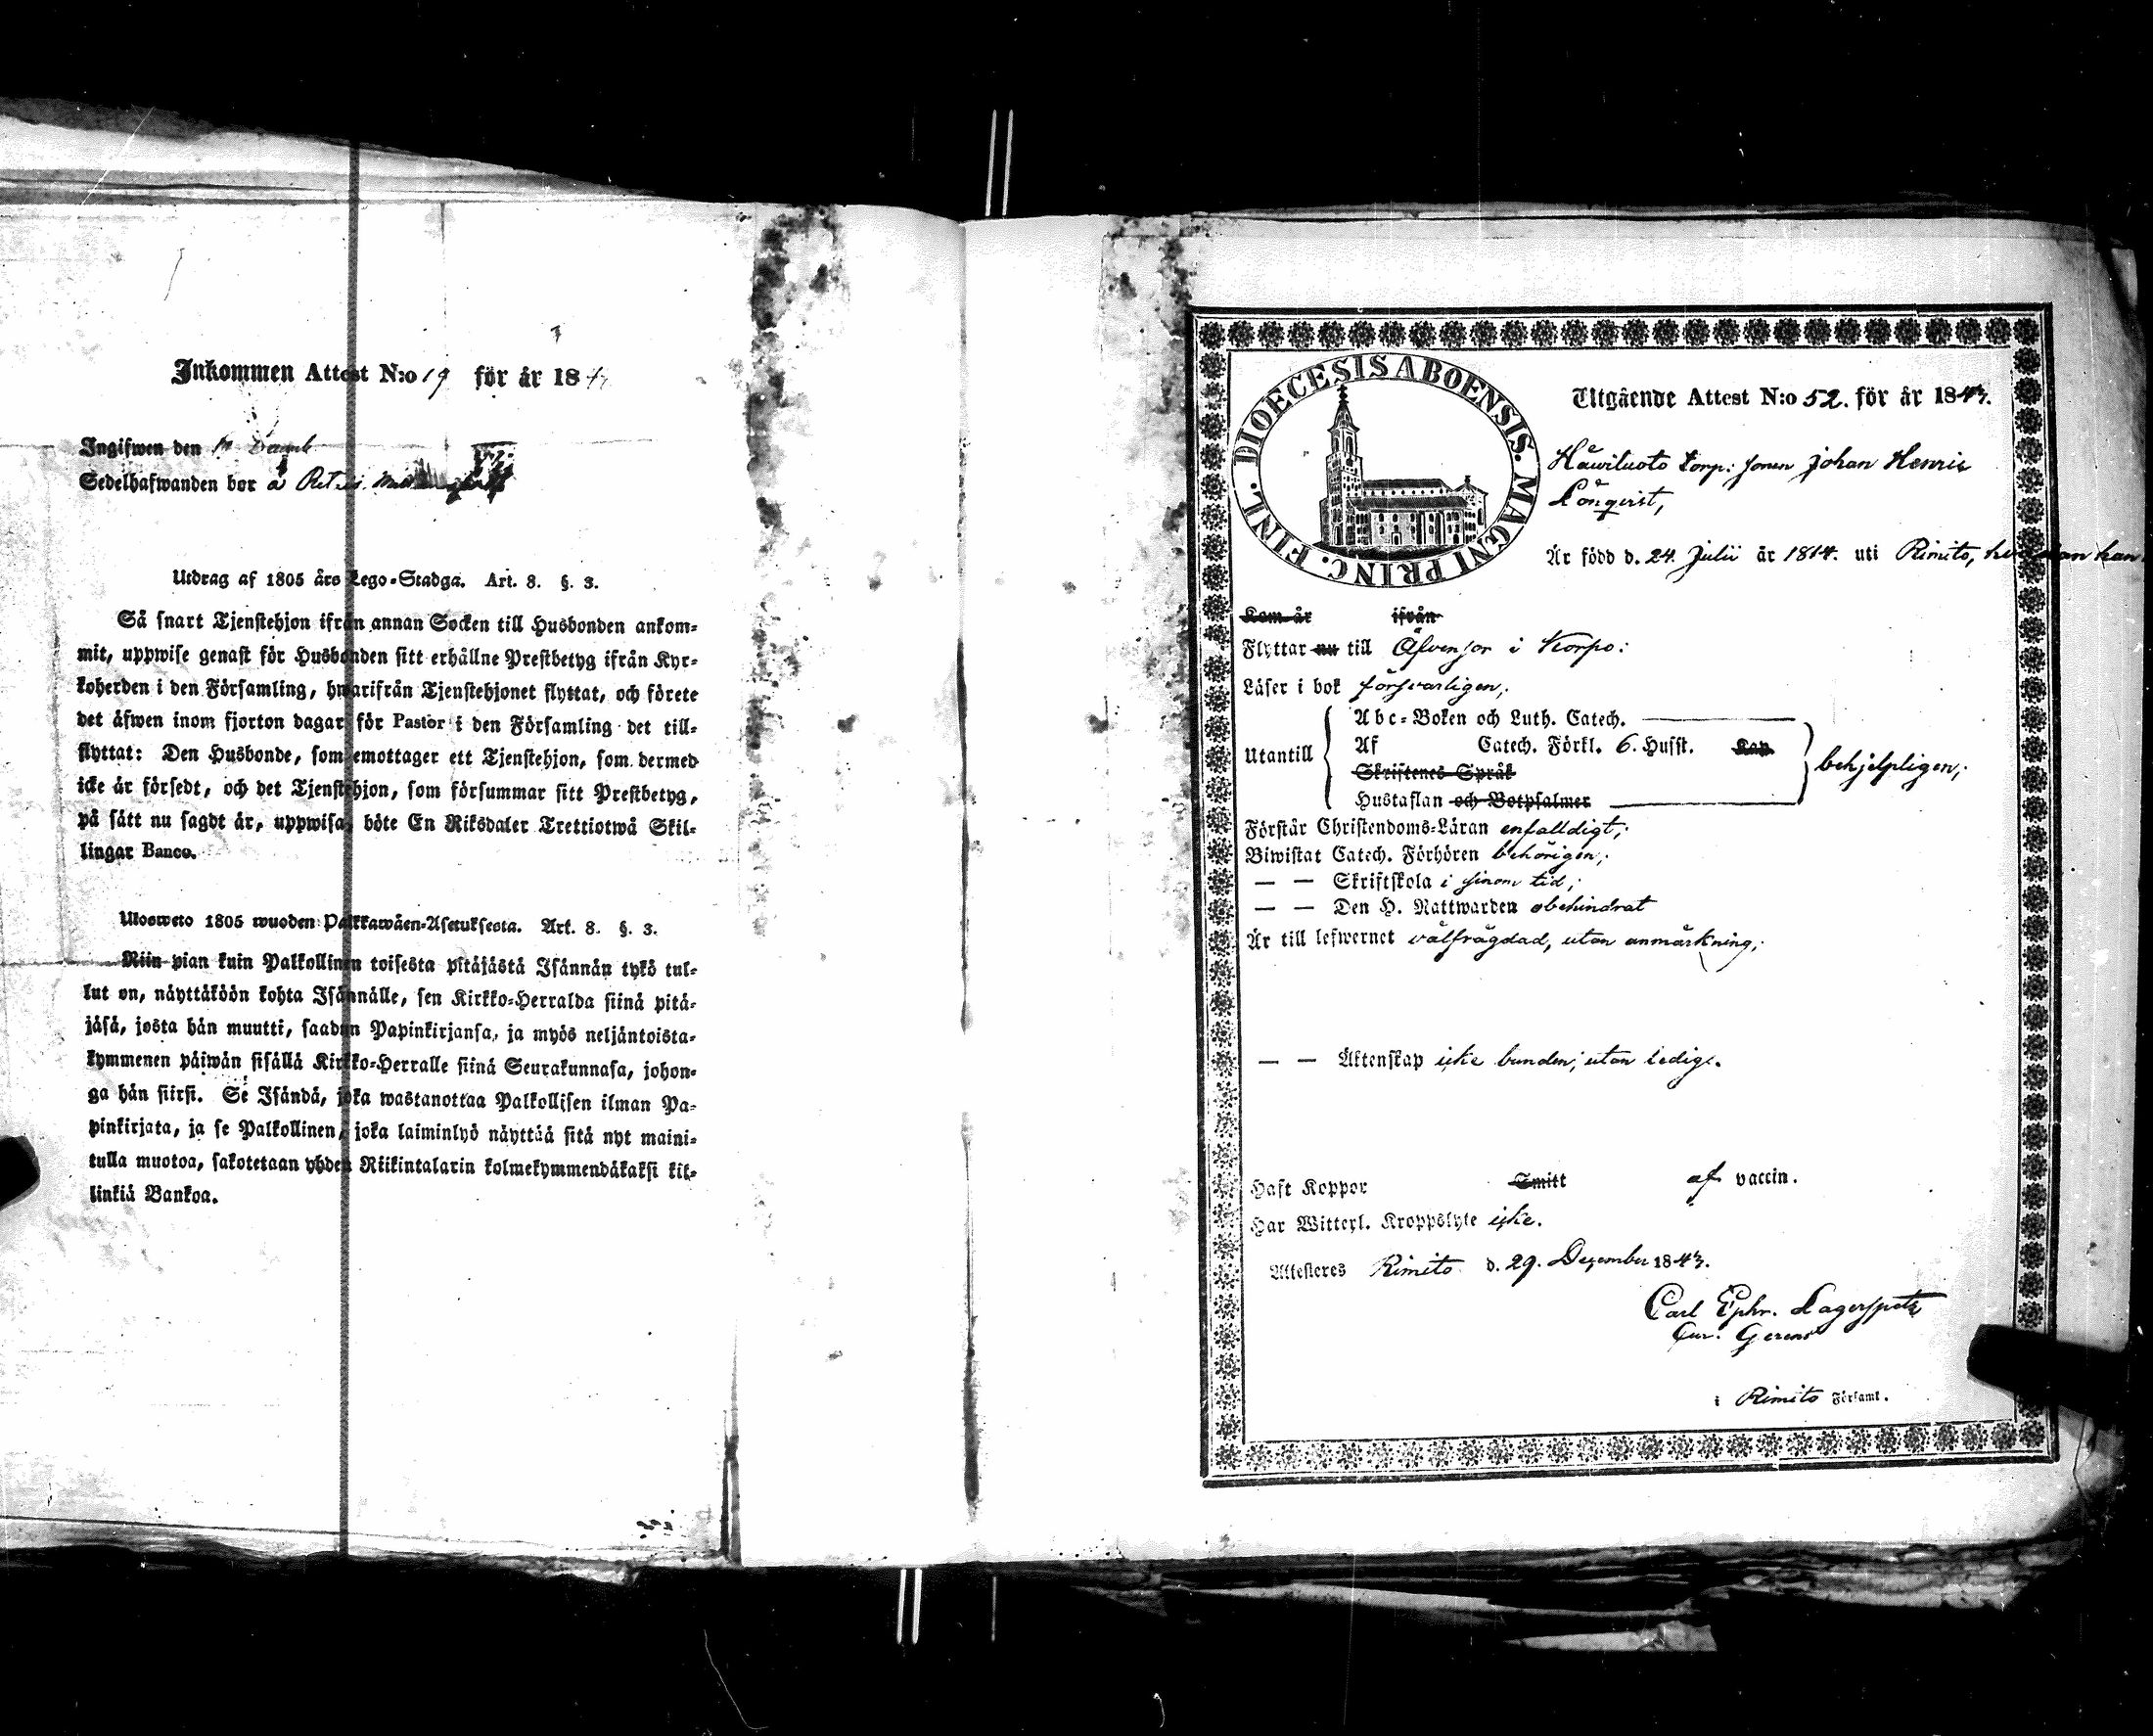 Inkommen Attest N:o 19 för år 184
Ingifwen den
Sedelhafwanden bor å
Utdrag af 1805 års Lego-Stadga. Art. 8. §. 3.
Så snart Tjenstehjon ifrån annan Socken till Husbonden ankom-
mit, uppwise genast för Husbonden sitt erhållne Prestbetyg ifrån Kyr-
koherden i den Församling, hwarifrån Tjenstehjonet flyttat, och förete
det äfwen inom fjorton dagar för Pastor i den Församling det till-
flyttat: Den Husbonde, som emottager ett Tjenstehjon, som dermed
icke är försedt, och det Tjenstehjon, som försummar sitt Prestbetyg,
på sätt nu sagdt är, uppwisa, böte En Riksdaler Trettiotwå Skil-
lingar Banco.
Ulosweto 1805 wuoden Palkkawäen-Asetuksesta. Art. 8. §. 3.
Niin pian kuin Palkollinen toisesta pitäjästä Isännän tykö tul-
lut on, näyttäköön kohta Isännälle, sen Kirkko-Herralda siinä pitä-
jäsä, josta hän muutti, saadun Papinkirjansa, ja myös neljäntoista-
kymmenen päiwän sisällä Kirkko-Herralle siinä Seurakunnasa, johon-
ga hän siirsi. Se Isändä, joka wastanottaa Palkollisen ilman Pa-
pinkirjata, ja se Palkollinen, joka laiminlyö näyttää sitä nyt maini-
tulla muotoa, sakotetaan yhden Riikintalarin kolmekymmendäkaksi kil-
linkiä Bankoa.
DIOECESIS ABOENSIS. MAGNI PRINC. FINL.
Utgående Attest N:o 52. för år 1843.
Hawiluoto torp: sonen Johan Henric
Lönqvist,
Är född d. 24. Julii år 1814. uti Rimito, hwarifrån han
Kom år ifrån
Flyttar nu till Äfvensor i Korpo:
Läser i bok försvarligen;
Utantill
Abc-Boken och Luth. Catech.
Af Catech. Förkl. 6. Husst. Kap.
Skriftenes Språk
Hustaflan och Botpsalmer
behjelpligen;
Förstår Christendoms-Läran enfalldigt;
Biwistat Catech. Förhören behörigen;
— — Skriftskola i sinom tid;
— — Den H. Nattwarden obehindrat
Är till lefwernet välfrägdad, utan anmärkning;
— — Äktenskap icke bunden; utan ledig.
Haft Koppor Smitt af vaccin.
Har Witterl. Kroppslyte icke.
Attesteres Rimito d. 29. December 1843.
Carl Ephr. Lagerspetz
Cur. Gerens
i Rimito Församl.